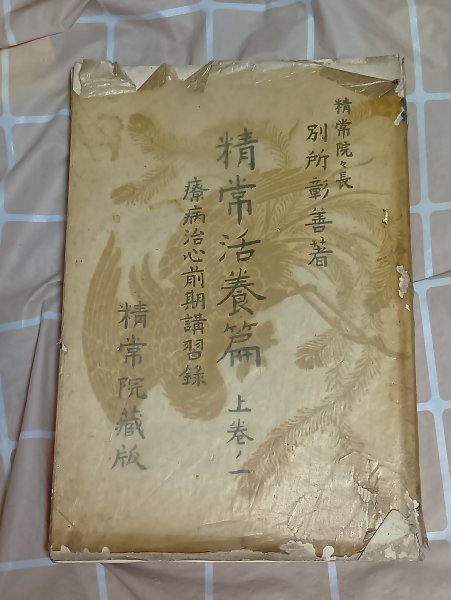 精常院々長
別所彰善著
精常活養篇 上巻ノ一
療病治心前期講習錄
精常院藏版